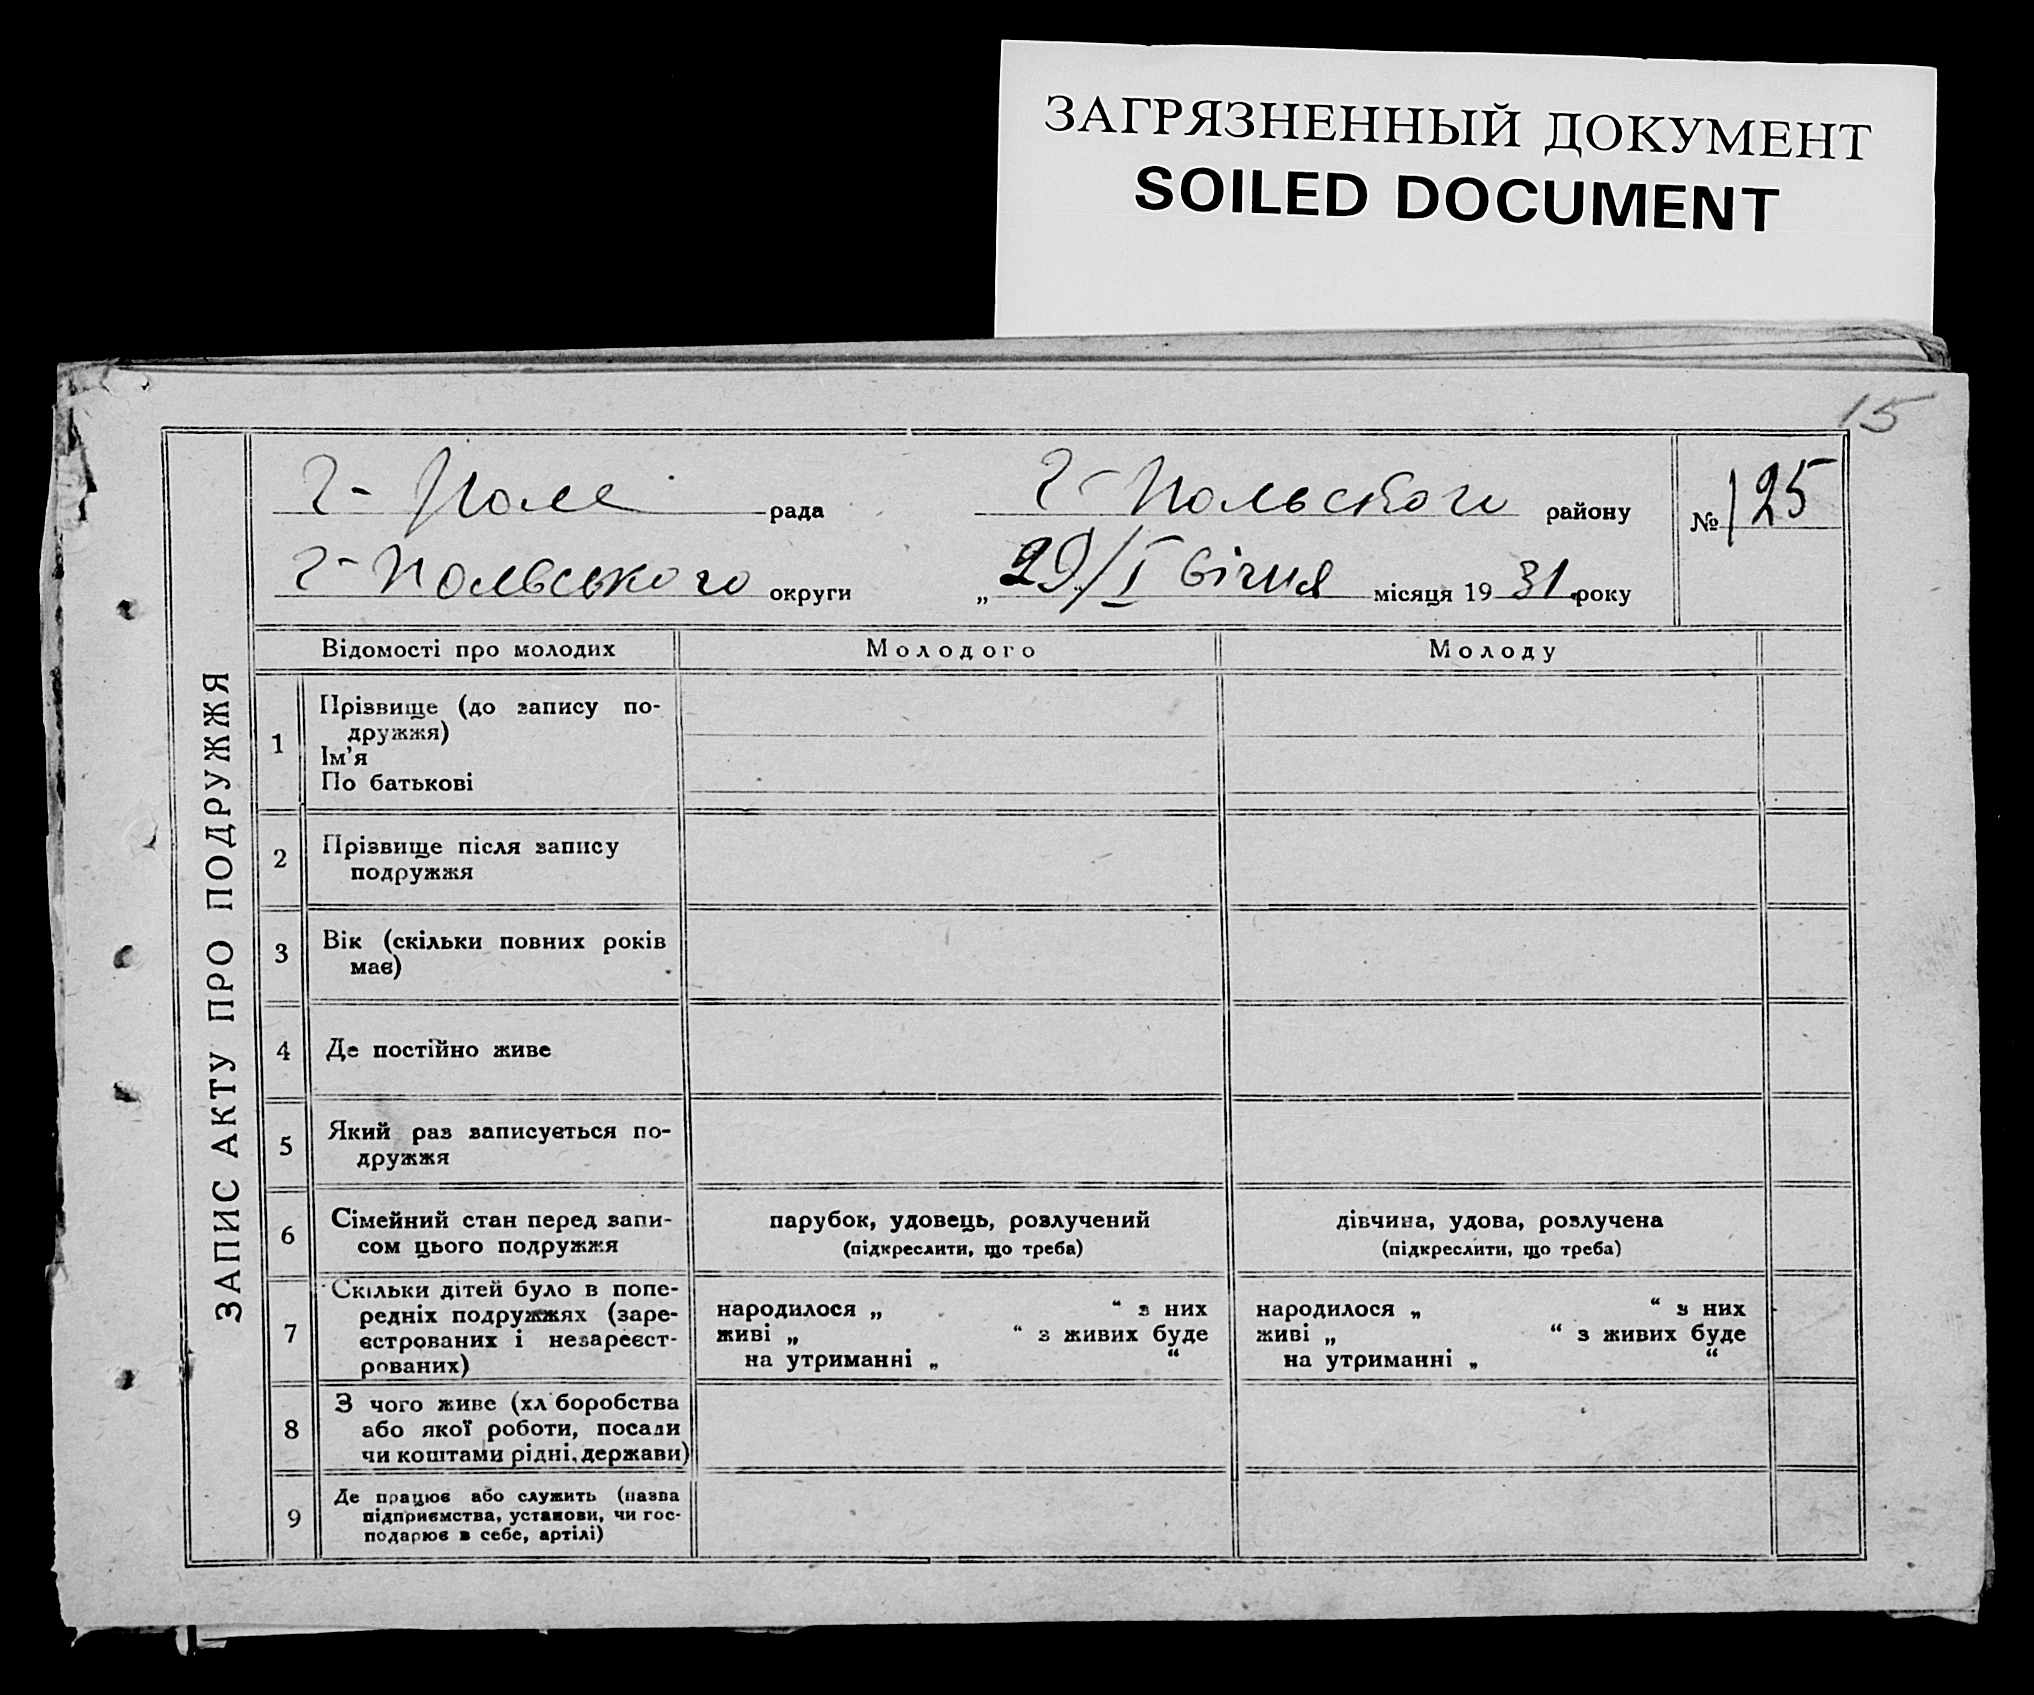 ЗАГРЯЗНЕННЫЙ ДОКУМЕНТ
SOILED DOCUMENT
15
ЗАПИС АКТУ ПРО ПОДРУЖЖЯ
Г-Поле рада Г-Польского району № 125
Г-Польського округи „29/I січня місяця 1931 року
Відомості про молодих Молодого Молоду
1 Прізвище (до запису по-
дружжя)
Ім'я
По батькові
2 Прізвище після запису
подружжя
3 Вік (скільки повних років
має)
4 Де постійно живе
5 Який раз записується по-
дружжя
6 Сімейний стан перед запи-
сом цього подружжя
парубок, удовець, розлучений
(підкреслити, що треба)
дівчина, удова, розлучена
(підкреслити, що треба)
7 Скільки дітей було в попе-
редніх подружжях (заре-
єстрованих і незареєст-
рованих)
народилося „ “ з них
живі „ “ з живих буде
на утриманні „ “
народилося „ “ з них
живі „ “ з живих буде
на утриманні „ “
8 З чого живе (хл боробства
або якої роботи, посади
чи коштами рідні, держави)
9 Де працює або служить (назва
підприємства, установи, чи гос-
подарює в себе, артілі)